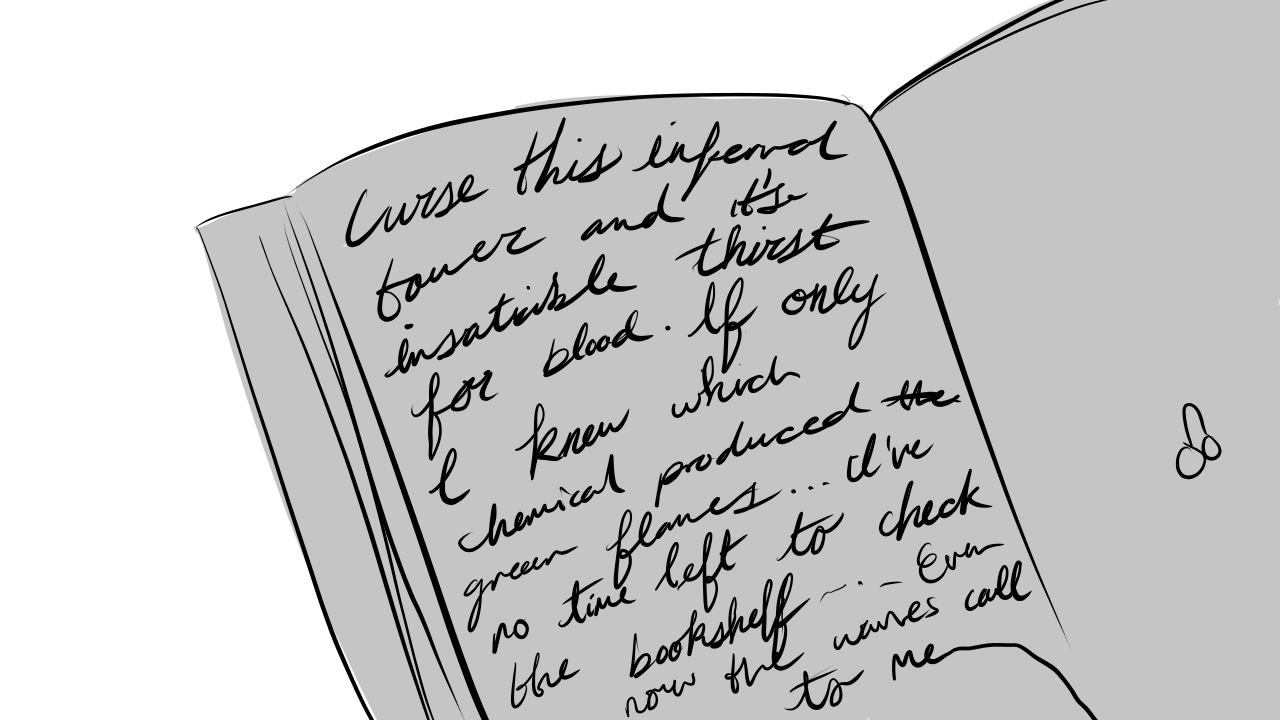 Curse this infernal
tower and it's
insatiable thirst
for blood. If only
I knew which
chemical produced the
green flames... I've
no time left to check
the bookshelf... Even
now the waves call
to me